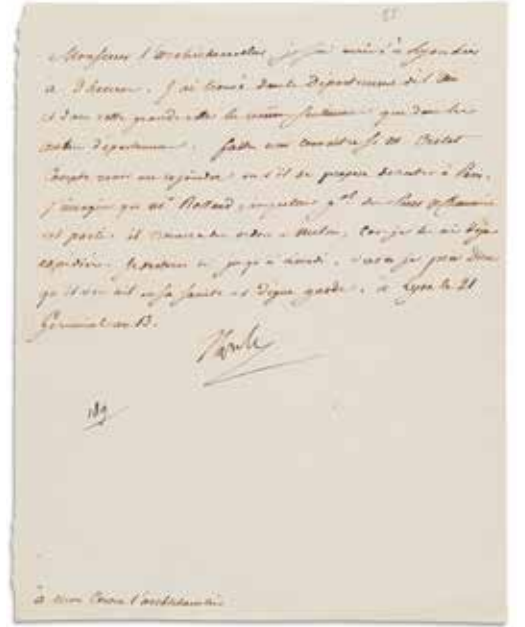 Monsieur l'archichancelier je suis arrivé à Lyon hier
à heures. J'ai trouvé dans le Département de l'Ain
et dans cette grande ville les mêmes sentimens que dans les
autres départemens. faites moi connaitre si M.
compte venir me rejoindre ou s'il se propose de rester à Paris.
J'imagine que Mr Rolland, inspecteur gal des Ponts et chaussées
est parti. il trouvera des ordres à Milan, car je l'ai déjà
expédié. Je resterai ici jusqu'à mardi. sur ce je prie Dieu
qu'il vous ait en sa sainte et digne garde. à Lyon le 21
Germinal an 13.
Napole
189
à mon Cousin l'archichancelier